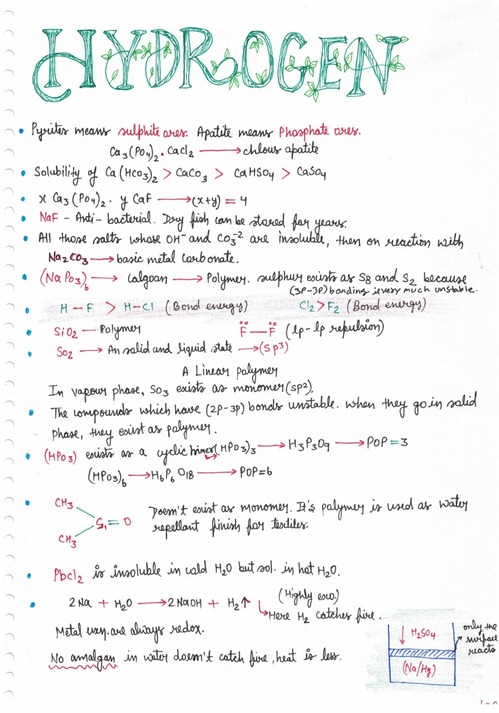 HYDROGEN
• Pyrites means sulphite ores. Apatite means Phosphate ores.
Ca3(PO4)2 . CaCl2 ⟶ chlous apatite
• Solubility of Ca(HCO3)2 > CaCO3 > CaHSO4 > CaSO4
• x Ca3(PO4)2 . y CaF ⟶ (x+y) = 4
• NaF - Anti-bacterial. Dry fish can be stored for years.
• All those salts whose OH⁻ and CO3⁻² are insoluble, then on reaction with
Na2CO3 ⟶ basic metal carbonate.
• (NaPO3)6 ⟶ calgoan ⟶ Polymer. sulphur exists as S8 and S2 because
(3P-3P) bonding is very much unstable.
• H-F > H-Cl (Bond energy) Cl2 > F2 (Bond energy)
• SiO2 — Polymer F — F (lp-lp repulsion)
SO2 ⟶ An solid and liquid state ⟶ (Sp3)
A Linear polymer
In vapour phase, SO3 exists as monomer (sp2).
• The compounds which have (2P-3P) bonds unstable. when they go in solid
phase, they exist as polymer.
• (HPO3) exists as a cyclic (HPO3)3 ⟶ H3P3O9 ⟶ POP = 3
(HPO3)6 ⟶ H6P6O18 ⟶ POP = 6
• CH3
Si = O
CH3
Doesn't exist as monomer. It's polymer is used as water
repellant finish for textiles.
• PbCl2 is insoluble in cold H2O but sol. in hot H2O.
• 2Na + H2O ⟶ 2NaOH + H2↑ (Highly exo.)
Here H2 catches fire.
Metal rxn. are always redox.
No amalgan in water doesn't catch fire, heat is less.
H2SO4
(Na/Hg)
only the
surface
reacts